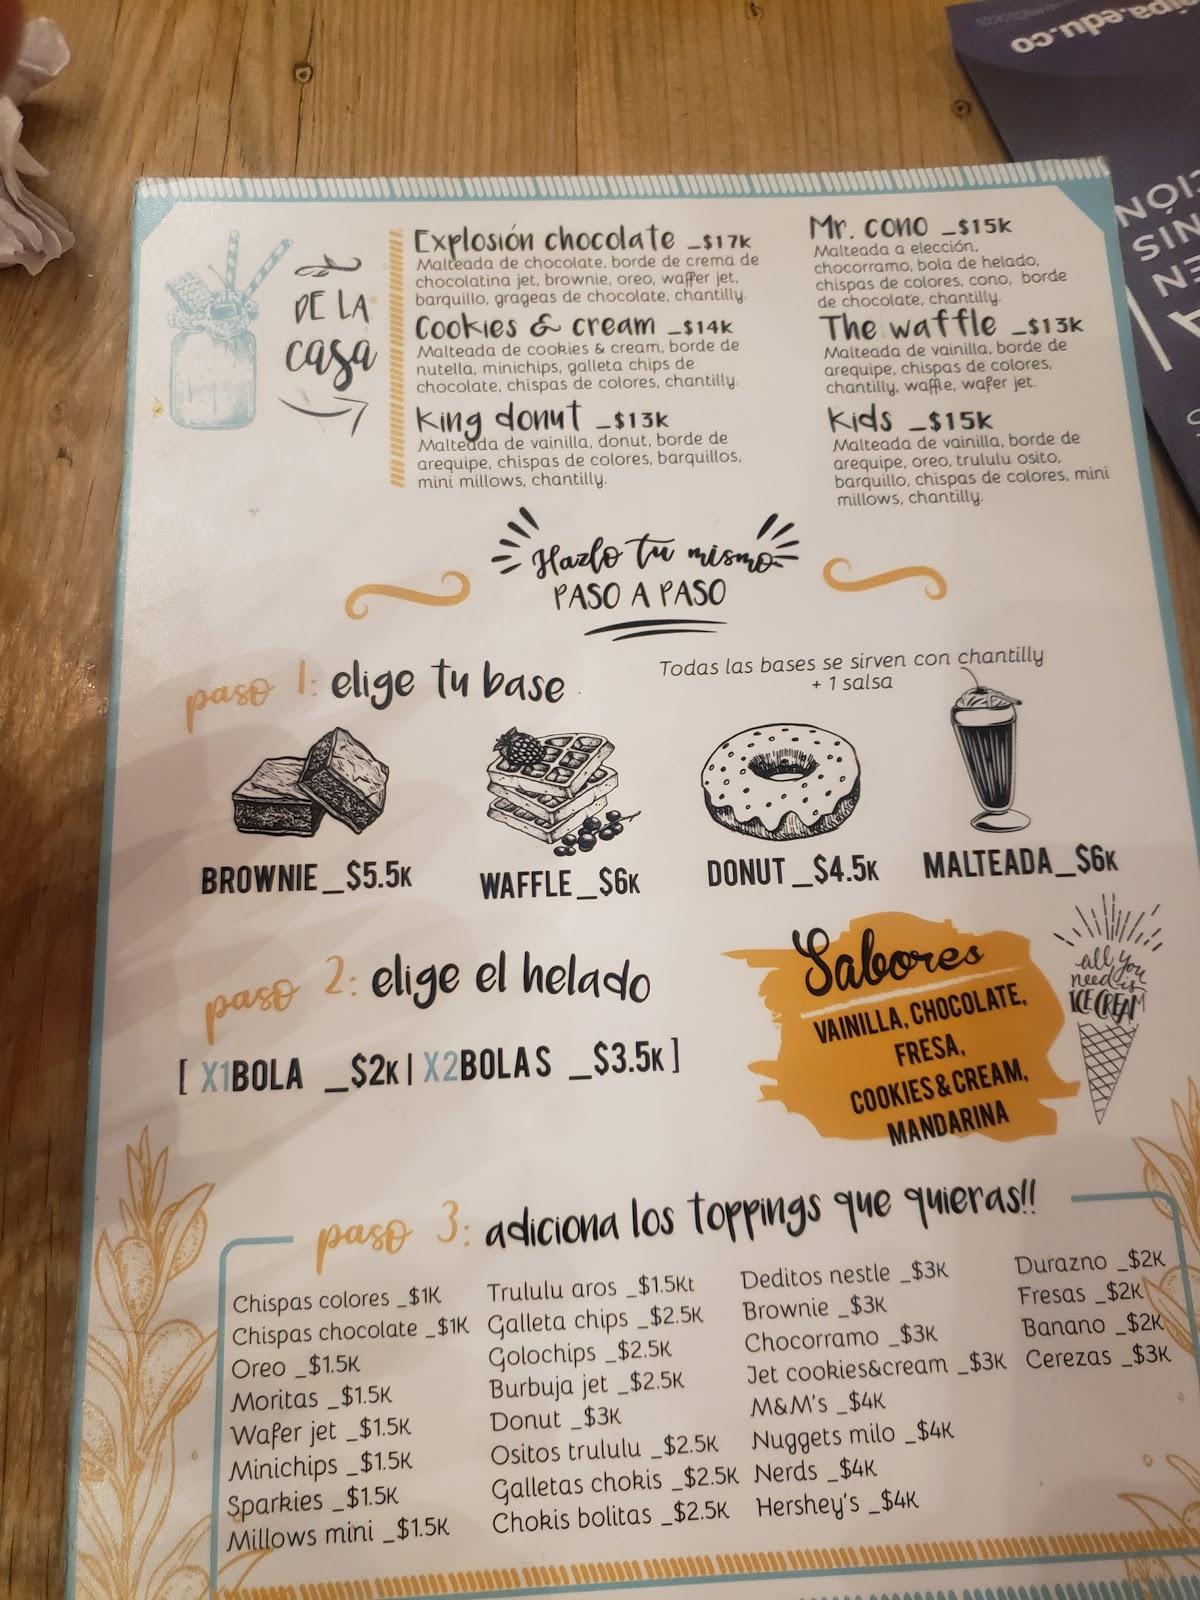 DE LA
casa
Explosión chocolate _$17K
Malteada de chocolate, borde de crema de
chocolatina jet, brownie, oreo, waffer jet,
barquillo, grageas de chocolate, chantilly.
Cookies & cream _$14K
Malteada de cookies & cream, borde de
nutella, minichips, galleta chips de
chocolate, chispas de colores, chantilly.
King donut _$13K
Malteada de vainilla, donut, borde de
arequipe, chispas de colores, barquillos,
mini millows, chantilly.
Mr. cono _$15K
Malteada a elección,
chocorramo, bola de helado,
chispas de colores, cono, borde
de chocolate, chantilly.
The waffle _$13K
Malteada de vainilla, borde de
arequipe, chispas de colores,
chantilly, waffle, wafer jet.
Kids _$15K
Malteada de vainilla, borde de
arequipe, oreo, trululu osito,
barquillo, chispas de colores, mini
millows, chantilly.
Hazlo tu mismo
PASO A PASO
paso 1: elige tu base
Todas las bases se sirven con chantilly
+ 1 salsa
BROWNIE_$5.5K
WAFFLE_$6K
DONUT_$4.5K
MALTEADA_$6K
paso 2: elige el helado
[ X1BOLA _$2K | X2BOLAS _$3.5K ]
Sabores
VAINILLA, CHOCOLATE,
FRESA,
COOKIES&CREAM,
MANDARINA
all you
need is
ICE CREAM
paso 3: adiciona los toppings que quieras!!
Chispas colores _$1K
Chispas chocolate _$1K
Oreo _$1.5K
Moritas _$1.5K
Wafer jet _$1.5K
Minichips _$1.5K
Sparkies _$1.5K
Millows mini _$1.5K
Trululu aros _$1.5Kt
Galleta chips _$2.5K
Golochips _$2.5K
Burbuja jet _$2.5K
Donut _$3K
Ositos trululu _$2.5K
Galletas chokis _$2.5K
Chokis bolitas _$2.5K
Deditos nestle _$3K
Brownie _$3K
Chocorramo _$3K
Jet cookies&cream _$3K
M&M's _$4K
Nuggets milo _$4K
Nerds _$4K
Hershey's _$4K
Durazno _$2K
Fresas _$2K
Banano _$2K
Cerezas _$3K
ipa.edu.co